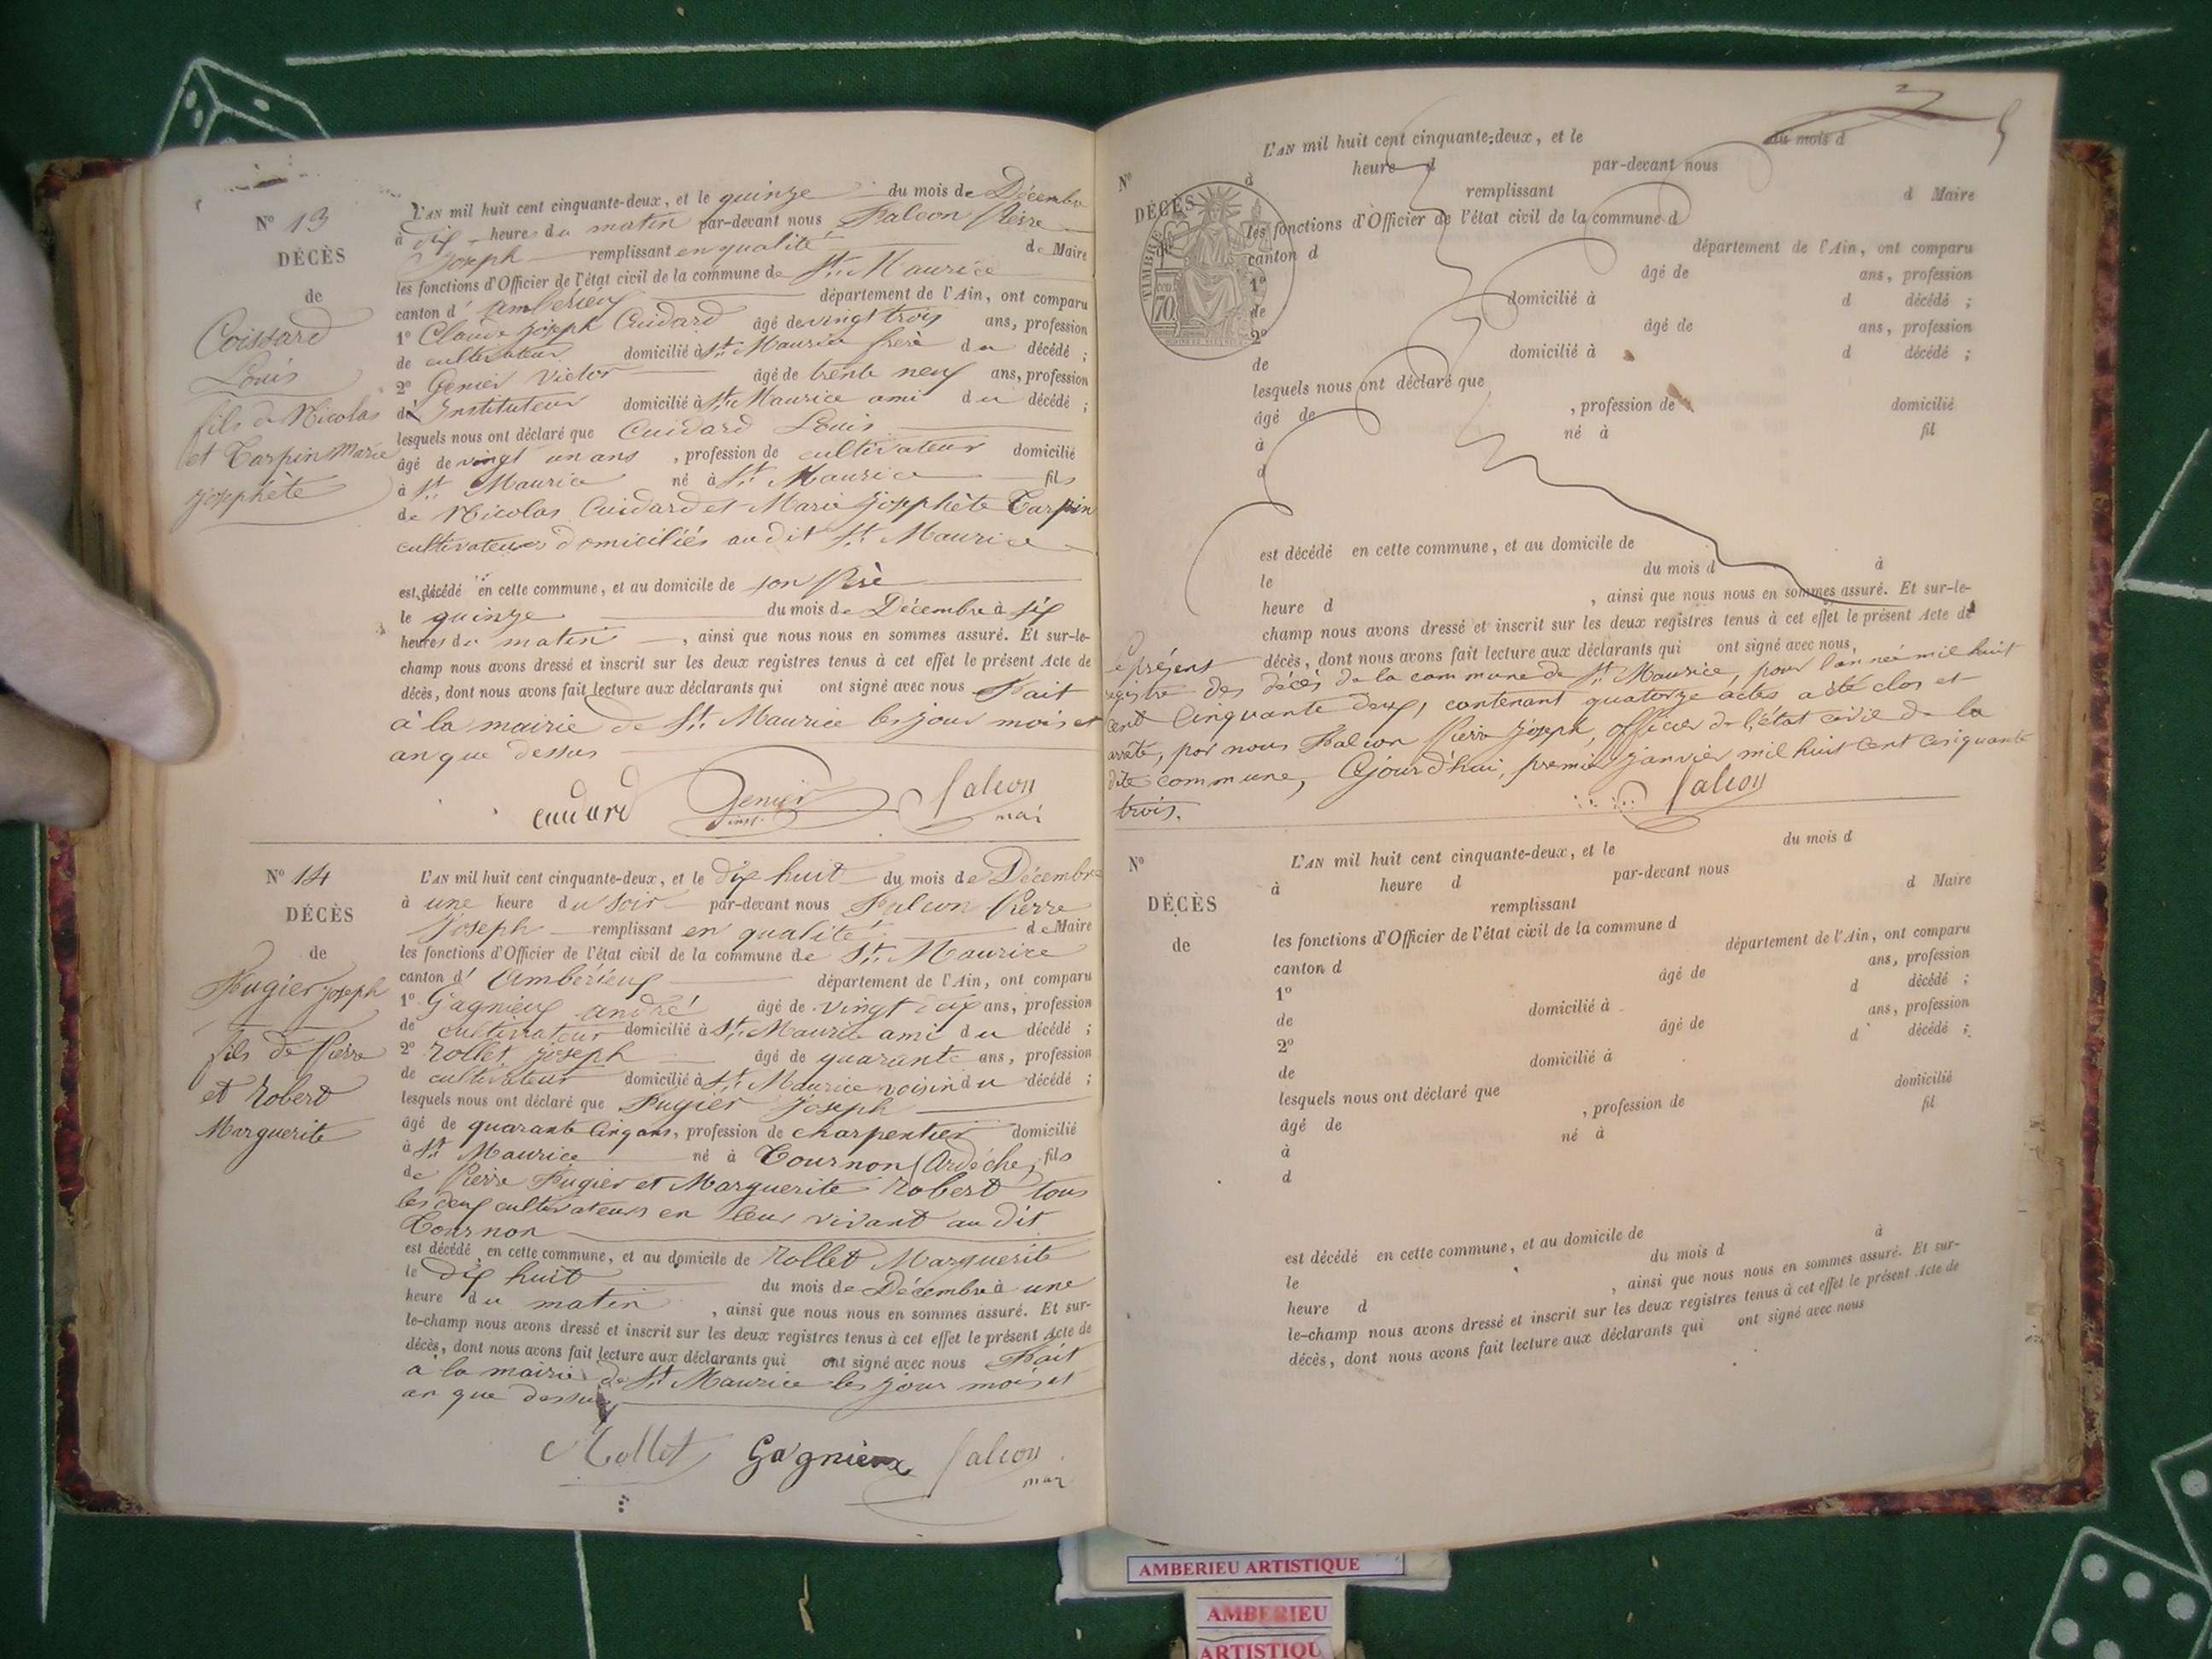 N° 13
DÉCÈS
de
Coissard
Louis
fils de Nicolas
et Tarpin Marie
josephète
L'AN mil huit cent cinquante-deux, et le quinze du mois de Décembre
à dix heures du matin par-devant nous Falcon Pierre
Joseph remplissant en qualité de Maire
les fonctions d'Officier de l'état civil de la commune de St. Maurice
canton d' ambérieux département de l'Ain, ont comparu
1° Claude joseph Cuidard âgé de vingt trois ans, profession
de cultivateur domicilié à St. Maurice frère du décédé ;
2° Genier Victor âgé de trente neuf ans, profession
de Instituteur domicilié à St. Maurice ami du décédé ;
lesquels nous ont déclaré que Cuidard Louis
âgé de vingt un ans , profession de cultivateur domicilié
à St. Maurice né à St. Maurice fils
de Nicolas Cuidard et Marie josephète Tarpin
cultivateurs domiciliés au dit St. Maurice
est décédé en cette commune, et au domicile de son Père
le quinze du mois de Décembre à six
heures du matin , ainsi que nous nous en sommes assuré. Et sur-le-
champ nous avons dressé et inscrit sur les deux registres tenus à cet effet le présent Acte de
décès, dont nous avons fait lecture aux déclarants qui ont signé avec nous Fait
à la mairie de St. Maurice les jour mois et
an que dessus
cuidard Genier inst. falcon
mai
N° 14
DÉCÈS
de
Fugier joseph
fils de Pierre
et Robert
Marguerite
L'AN mil huit cent cinquante-deux, et le dix huit du mois de Décembre
à une heure du soir par-devant nous Falcon Pierre
Joseph remplissant en qualité de Maire
les fonctions d'Officier de l'état civil de la commune de St. Maurice
canton d' Ambérieux département de l'Ain, ont comparu
1° Gagnieux andré âgé de vingt six ans, profession
de cultivateur domicilié à St. Maurice ami du décédé ;
2° Rollet joseph âgé de quarante ans, profession
de cultivateur domicilié à St. Maurice voisin du décédé ;
lesquels nous ont déclaré que Fugier Joseph
âgé de quarante cinq ans, profession de charpentier domicilié
à St. Maurice né à Tournon (Ardèche) fils
de Pierre Fugier et Marguerite Robert tous
les deux cultivateurs en leur vivant au dit
Tournon
est décédé en cette commune, et au domicile de Rollet Marguerite
le dix huit du mois de Décembre à une
heure du matin , ainsi que nous nous en sommes assuré. Et sur-
le-champ nous avons dressé et inscrit sur les deux registres tenus à cet effet le présent Acte de
décès, dont nous avons fait lecture aux déclarants qui ont signé avec nous Fait
à la mairie de St. Maurice les jour mois et
an que dessus
Rollet Gagnieux falcon
mar
N°
DÉCÈS
TIMBRE
70
L'AN mil huit cent cinquante-deux, et le du mois d
à heure d par-devant nous
remplissant d Maire
les fonctions d'Officier de l'état civil de la commune d
canton d département de l'Ain, ont comparu
1° âgé de ans, profession
de domicilié à d décédé ;
2° âgé de ans, profession
de domicilié à d décédé ;
lesquels nous ont déclaré que
âgé de , profession de domicilié
à né à fil
d
est décédé en cette commune, et au domicile de
le du mois d à
heure d , ainsi que nous nous en sommes assuré. Et sur-le-
champ nous avons dressé et inscrit sur les deux registres tenus à cet effet le présent Acte de
décès, dont nous avons fait lecture aux déclarants qui ont signé avec nous,
Le présent
registre des décès de la commune de St. Maurice, pour l'année mil huit
cent Cinquante deux, contenant quatorze actes a été clos et
arrêté, par nous Falcon Pierre Joseph, officier de l'état civil de la
dite commune, Cejourd'hui, premier janvier mil huit cent cinquante
trois. falcon
N°
DÉCÈS
de
L'AN mil huit cent cinquante-deux, et le du mois d
à heure d par-devant nous
remplissant d Maire
les fonctions d'Officier de l'état civil de la commune d
canton d département de l'Ain, ont comparu
1° âgé de ans, profession
de domicilié à d décédé ;
2° âgé de ans, profession
de domicilié à d décédé ;
lesquels nous ont déclaré que
âgé de , profession de domicilié
à né à fil
d
est décédé en cette commune, et au domicile de
le du mois d à
heure d , ainsi que nous nous en sommes assuré. Et sur-
le-champ nous avons dressé et inscrit sur les deux registres tenus à cet effet le présent Acte de
décès, dont nous avons fait lecture aux déclarants qui ont signé avec nous
AMBERIEU ARTISTIQUE
AMBERIEU
ARTISTIQU